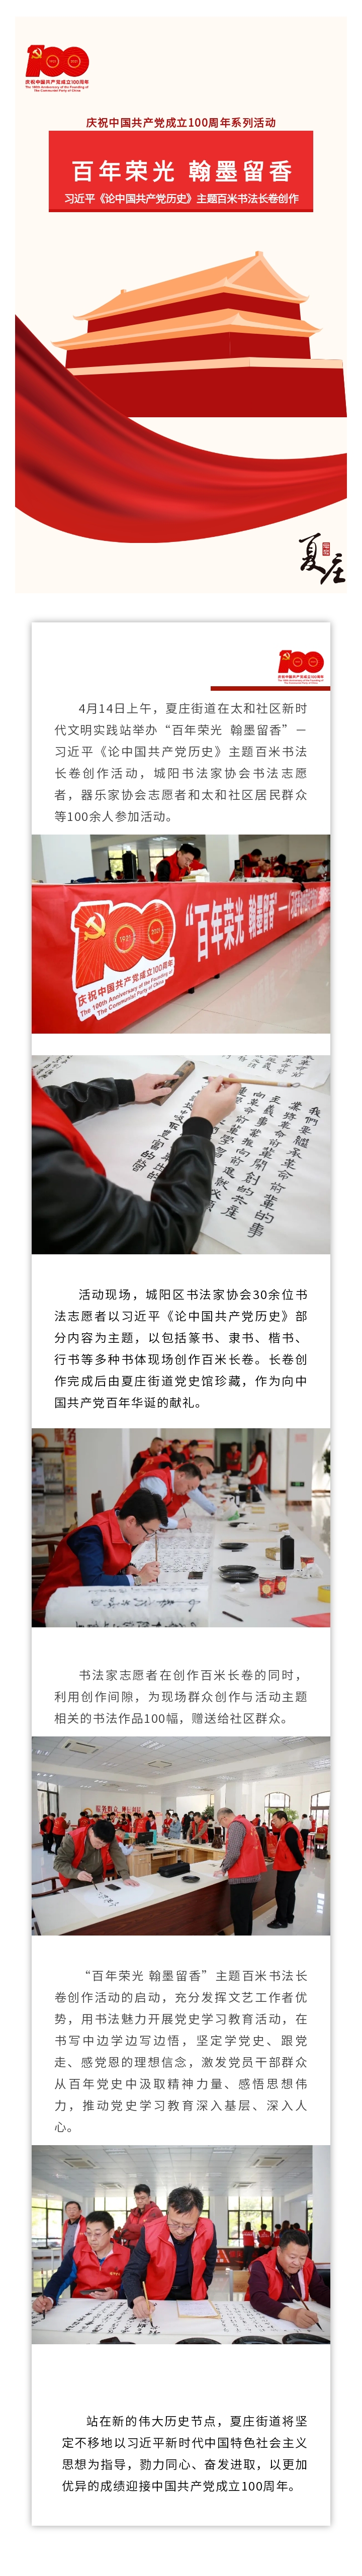 100
庆祝中国共产党成立100周年
The 100th Anniversary of the Founding of
The Communist Party of China
庆祝中国共产党成立100周年系列活动
百年荣光 翰墨留香
习近平《论中国共产党历史》主题百米书法长卷创作
夏庄
100
庆祝中国共产党成立100周年
The 100th Anniversary of the Founding of
The Communist Party of China
4月14日上午，夏庄街道在太和社区新时
代文明实践站举办“百年荣光 翰墨留香”—
习近平《论中国共产党历史》主题百米书法
长卷创作活动，城阳书法家协会书法志愿
者，器乐家协会志愿者和太和社区居民群众
等100余人参加活动。
100
1921 2021
庆祝中国共产党成立100周年
The 100th Anniversary of the Founding of
The Communist Party of China
“百年荣光 翰墨留香”
活动现场，城阳区书法家协会30余位书
法志愿者以习近平《论中国共产党历史》部
分内容为主题，以包括篆书、隶书、楷书、
行书等多种书体现场创作百米长卷。长卷创
作完成后由夏庄街道党史馆珍藏，作为向中
国共产党百年华诞的献礼。
书法家志愿者在创作百米长卷的同时，
利用创作间隙，为现场群众创作与活动主题
相关的书法作品100幅，赠送给社区群众。
“百年荣光 翰墨留香”主题百米书法长
卷创作活动的启动，充分发挥文艺工作者优
势，用书法魅力开展党史学习教育活动，在
书写中边学边写边悟，坚定学党史、跟党
走、感党恩的理想信念，激发党员干部群众
从百年党史中汲取精神力量、感悟思想伟
力，推动党史学习教育深入基层、深入人
心。
站在新的伟大历史节点，夏庄街道将坚
定不移地以习近平新时代中国特色社会主义
思想为指导，勠力同心、奋发进取，以更加
优异的成绩迎接中国共产党成立100周年。